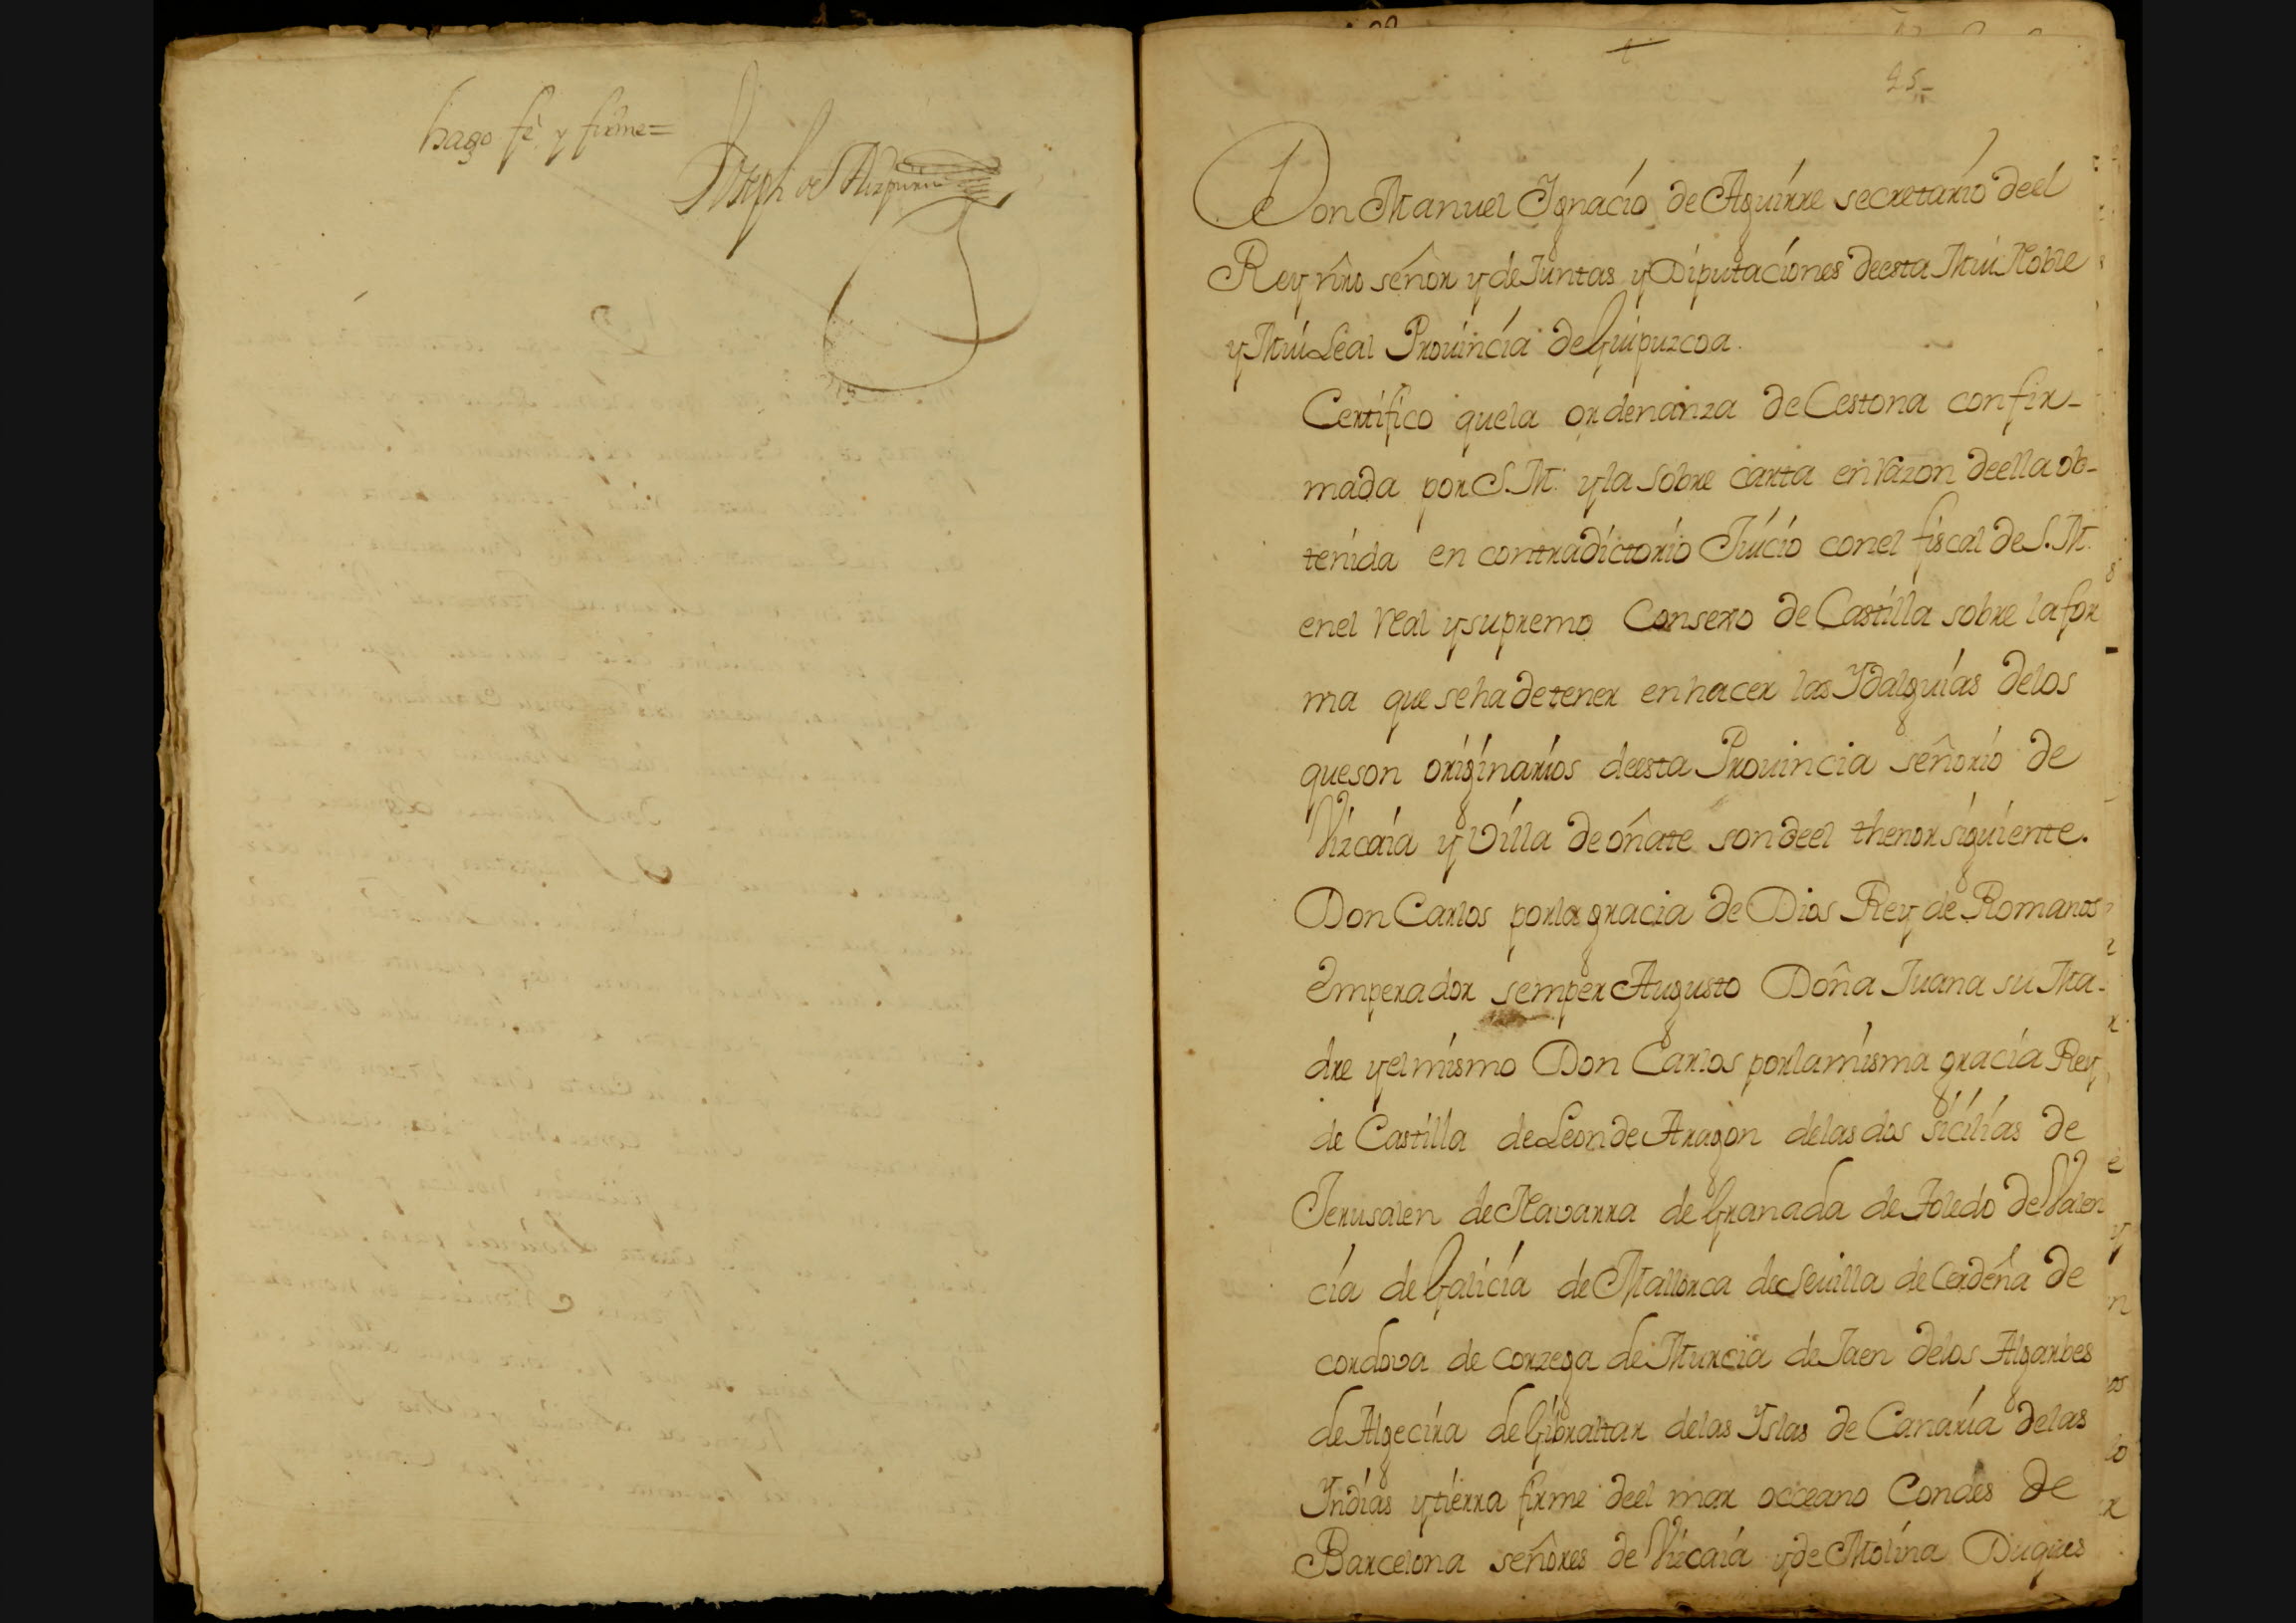 hago fê y firme=
Joseph de Aizpuru
25_
Don Manuel Ignacio de Aguirre secretario deel
Rey nrõ señor y de Juntas y Diputaciones deesta Mui Noble
y Mui Leal Prouincia de Guipuzcoa.
Certifico quela ordenanza de Cestona confir-
mada por S.M. yla sobre carta en razon deella ob-
tenida en contradictorio Juicio conel fiscal de S.M.
enel Real y supremo Consexo de Castilla sobre la for
ma que seha detener en hacer las Ydalguias delos
queson originarios deesta Prouincia señorio de
Vizcaia y Villa de oñate son deel thenor siguiente.
Don Carlos porla gracia de Dios Rey de Romanos
emperador semper Augusto Doña Juana su Ma-
dre yelmismo Don Carlos porlamisma gracia Rey
de Castilla de Leon de Aragon delas dos sicilias de
Jerusalen de Navarra de Granada de Toledo de Valen
cia de Galicia de Mallorca de Seuilla de Cerdeña de
cordova de corzega de Murcia de Jaen delos Algarbes
de Algecira de Gibraltar delas Yslas de Canaria delas
Yndias y tierra firme deel mar occeano Condes de
Barcelona señores de Vizcaia y de Molina Duques